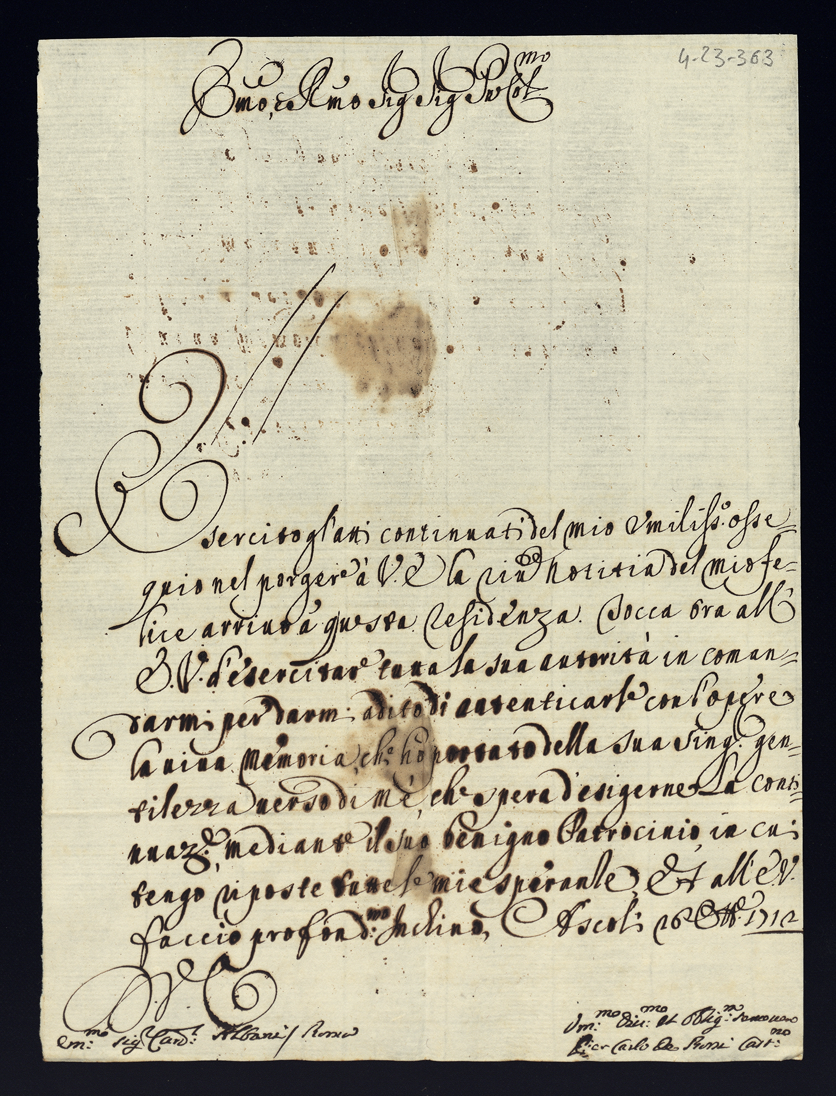 4-23-363
Emo, e Rmo Sig Sig Pn Col.mo
Esercito gl'atti continuati del mio Vmiliss:o osse=
quio nel porgere à V. E la riu.de notitia del mio fe=
lice arriuo à questa Residenza. Tocca ora all'
E. V. d'esercitare tutta la sua autorità in coman=
darmi per darmi adito di autenticarle con l'opere
la uiua memoria, che hò portato della sua Sing.r gen=
tilezza uerso di mè, che spera d'esigerne La conti=
nuaz.e, mediante il suo benigno Patrocinio, in cui
tengo riposte tutte le mie speranze, Et all' E. V.
faccio profond.mo Inchino, Ascoli 26 Ott.e 1712
D. V. E.
Em:mo Sig.r Card.l Albani / Roma
Vm:mo Diu:mo et Oblig.m Seruitore
Pier Carlo De Rossi